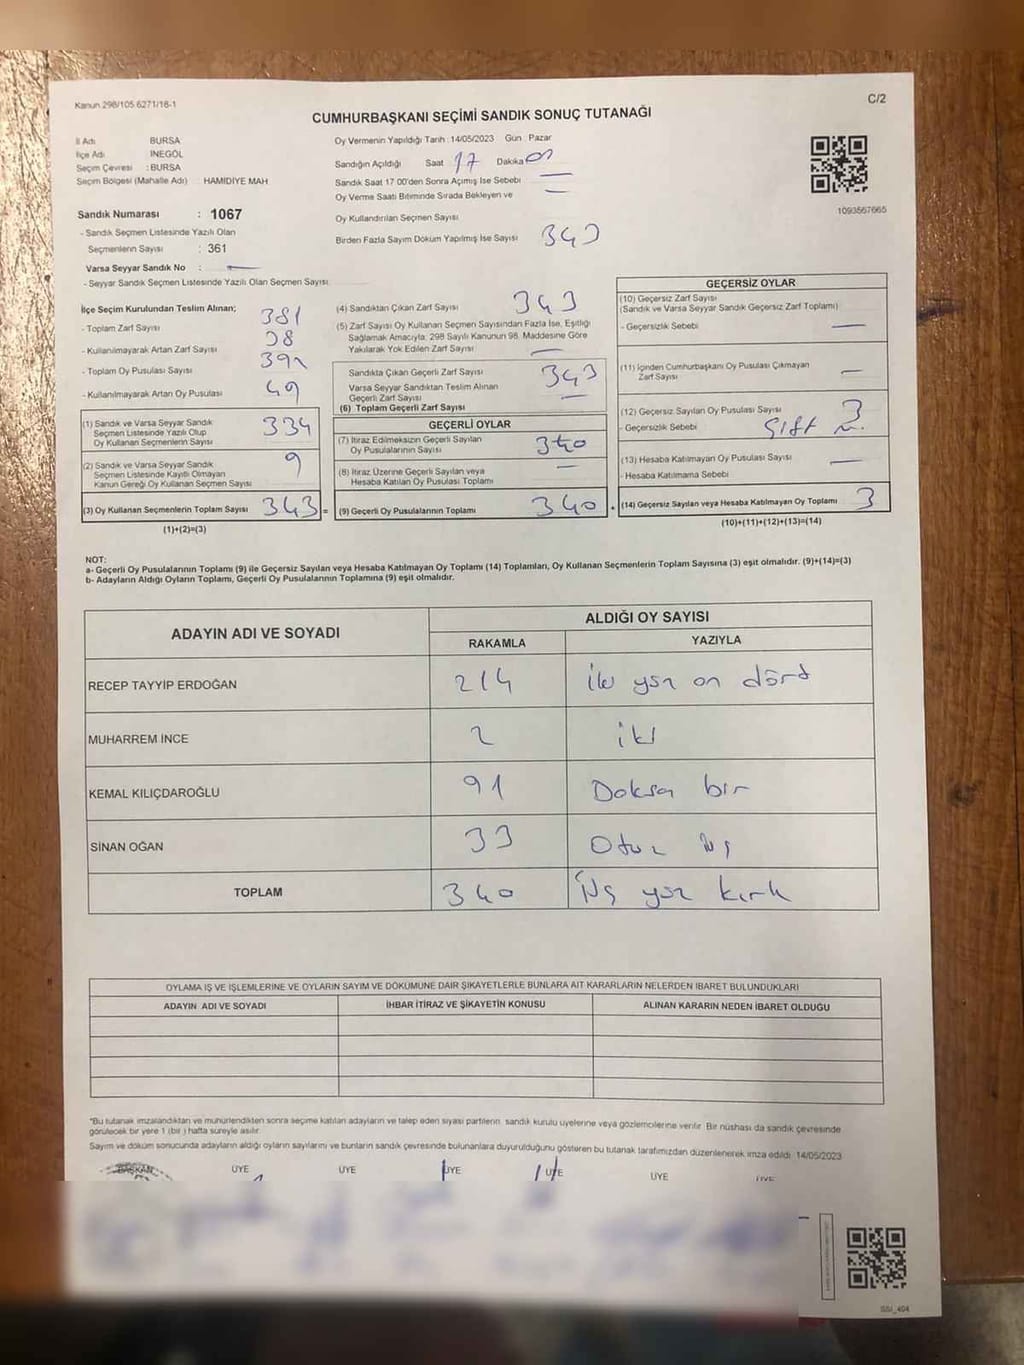 Kanun 298/105 6271/16-1
C/2
CUMHURBAŞKANI SEÇİMİ SANDIK SONUÇ TUTANAĞI
İl Adı BURSA
İlçe Adı İNEGÖL
Seçim Çevresi : BURSA
Seçim Bölgesi (Mahalle Adı) : HAMİDİYE MAH
Sandık Numarası : 1067
- Sandık Seçmen Listesinde Yazılı Olan
Seçmenlerin Sayısı : 361
Varsa Seyyar Sandık No :
- Seyyar Sandık Seçmen Listesinde Yazılı Olan Seçmen Sayısı
Oy Vermenin Yapıldığı Tarih : 14/05/2023 Gün : Pazar
Sandığın Açıldığı Saat 17 Dakika
Sandık Saat 17 00'den Sonra Açmış İse Sebebi
Oy Verme Saati Bitiminde Sırada Bekleyen ve
Oy Kullandırılan Seçmen Sayısı
Birden Fazla Sayım Döküm Yapılmış İse Sayısı 343
1093567665
İlçe Seçim Kurulundan Teslim Alınan;
- Toplam Zarf Sayısı 381
- Kullanılmayarak Artan Zarf Sayısı 38
- Toplam Oy Pusulası Sayısı 392
- Kullanılmayarak Artan Oy Pusulası 49
(1) Sandık ve Varsa Seyyar Sandık
Seçmen Listesinde Yazılı Olup
Oy Kullanan Seçmenlerin Sayısı 334
(2) Sandık ve Varsa Seyyar Sandık
Seçmen Listesinde Kayıtlı Olmayan
Kanun Gereği Oy Kullanan Seçmen Sayısı 9
(3) Oy Kullanan Seçmenlerin Toplam Sayısı 343 =
(1)+(2)=(3)
(4) Sandıktan Çıkan Zarf Sayısı 343
(5) Zarf Sayısı Oy Kullanan Seçmen Sayısından Fazla İse, Eşitliği
Sağlamak Amacıyla, 298 Sayılı Kanunun 98. Maddesine Göre
Yakılarak Yok Edilen Zarf Sayısı
Sandıkta Çıkan Geçerli Zarf Sayısı 343
Varsa Seyyar Sandıktan Teslim Alınan
Geçerli Zarf Sayısı
(6) Toplam Geçerli Zarf Sayısı
GEÇERLİ OYLAR
(7) İtiraz Edilmeksizin Geçerli Sayılan
Oy Pusulalarının Sayısı 340
(8) İtiraz Üzerine Geçerli Sayılan veya
Hesaba Katılan Oy Pusulası Toplamı
(9) Geçerli Oy Pusulalarının Toplamı 340
GEÇERSİZ OYLAR
(10) Geçersiz Zarf Sayısı
(Sandık ve Varsa Seyyar Sandık Geçersiz Zarf Toplamı)
- Geçersizlik Sebebi
(11) İçinden Cumhurbaşkanı Oy Pusulası Çıkmayan
Zarf Sayısı
(12) Geçersiz Sayılan Oy Pusulası Sayısı 3
- Geçersizlik Sebebi Çift
(13) Hesaba Katılmayan Oy Pusulası Sayısı
- Hesaba Katılmama Sebebi
(14) Geçersiz Sayılan veya Hesaba Katılmayan Oy Toplamı 3
(10)+(11)+(12)+(13)=(14)
NOT:
a- Geçerli Oy Pusulalarının Toplamı (9) ile Geçersiz Sayılan veya Hesaba Katılmayan Oy Toplamı (14) Toplamları, Oy Kullanan Seçmenlerin Toplam Sayısına (3) eşit olmalıdır. (9)+(14)=(3)
b- Adayların Aldığı Oyların Toplamı, Geçerli Oy Pusulalarının Toplamına (9) eşit olmalıdır.
ADAYIN ADI VE SOYADI
ALDIĞI OY SAYISI
RAKAMLA YAZIYLA
RECEP TAYYİP ERDOĞAN 214 iki yüz on dört
MUHARREM İNCE 2 iki
KEMAL KILIÇDAROĞLU 91 Doksan bir
SİNAN OĞAN 33 Otuz üç
TOPLAM 340 Üç yüz kırk
OYLAMA İŞ VE İŞLEMLERİNE VE OYLARIN SAYIM VE DÖKÜMÜNE DAİR ŞİKAYETLERLE BUNLARA AİT KARARLARIN NELERDEN İBARET BULUNDUKLARI
ADAYIN ADI VE SOYADI İHBAR İTİRAZ VE ŞİKAYETİN KONUSU ALINAN KARARIN NEDEN İBARET OLDUĞU
*Bu tutanak imzalandıktan ve mühürlendikten sonra seçime katılan adayların ve talep eden siyasi partilerin sandık kurulu üyelerine veya gözlemcilerine verilir. Bir nüshası da sandık çevresinde
görülecek bir yere 1 (bir) hafta süreyle asılır.
Sayım ve döküm sonucunda adayların aldığı oyların sayılarını ve bunların sandık çevresinde bulunanlara duyurulduğunu gösteren bu tutanak tarafımızdan düzenlenerek imza edildi. 14/05/2023
BAŞKAN ÜYE ÜYE ÜYE ÜYE ÜYE ÜYE
SSI_404